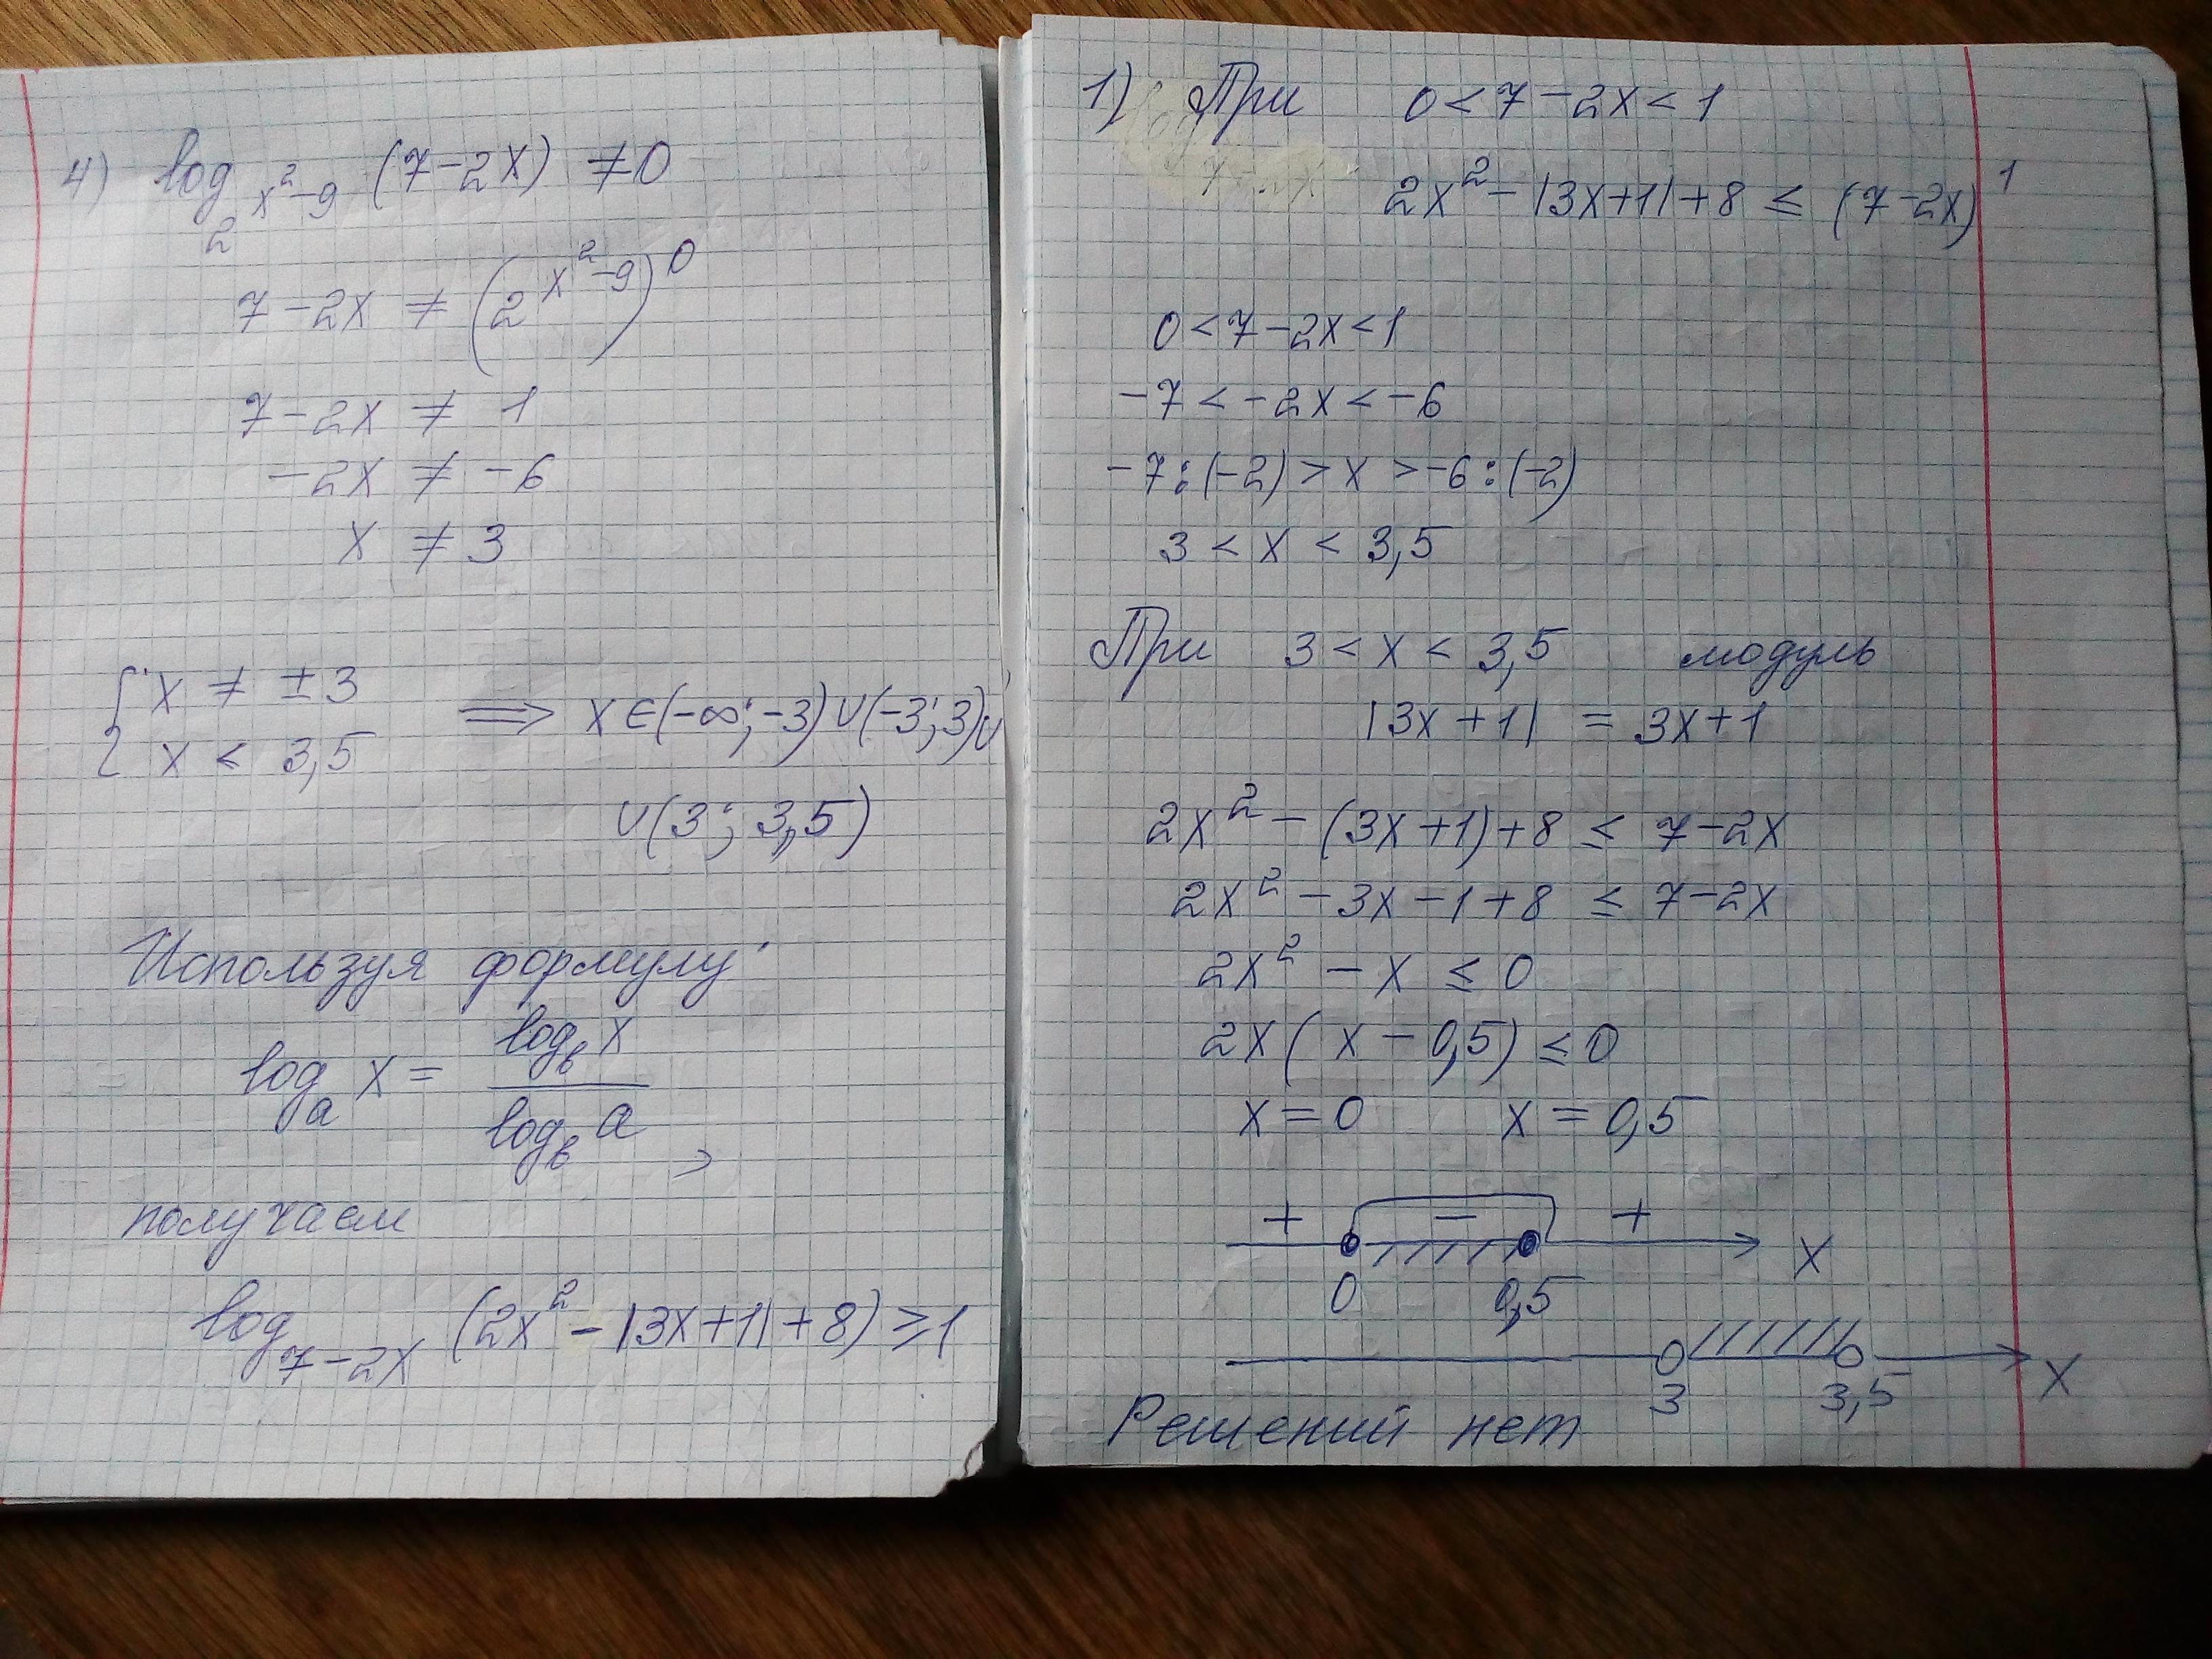 4) log_{2^{x²-9}} (7-2x) ≠ 0
7-2x ≠ (2^{x²-9})⁰
7-2x ≠ 1
-2x ≠ -6
x ≠ 3
{ x ≠ ±3
{ x < 3,5 ⟹ x ∈ (-∞; -3) ∪ (-3; 3) ∪
∪ (3; 3,5)
Используя формулу:
log_a x = log_b x / log_b a ,
получаем
log_{7-2x} (2x² - |3x+1| + 8) ≥ 1
1) При 0 < 7-2x < 1
2x² - |3x+1| + 8 ≤ (7-2x)¹
0 < 7-2x < 1
-7 < -2x < -6
-7:(-2) > x > -6:(-2)
3 < x < 3,5
При 3 < x < 3,5 модуль
|3x+1| = 3x+1
2x² - (3x+1) + 8 ≤ 7-2x
2x² - 3x - 1 + 8 ≤ 7-2x
2x² - x ≤ 0
2x(x - 0,5) ≤ 0
x = 0 x = 0,5
+ - +
0 0,5 x
3 3,5 x
Решений нет